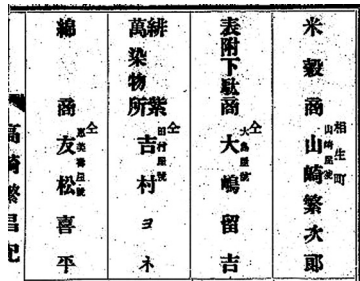 米穀商 相生町 山崎屋號 山崎繁次郎
表附下駄商 仝 大島屋號 大嶋留吉
緋紫萬染物所 仝 田村屋號 吉村ヨネ
綿商 仝 恵美壽屋號 友松喜平
高崎繁昌記